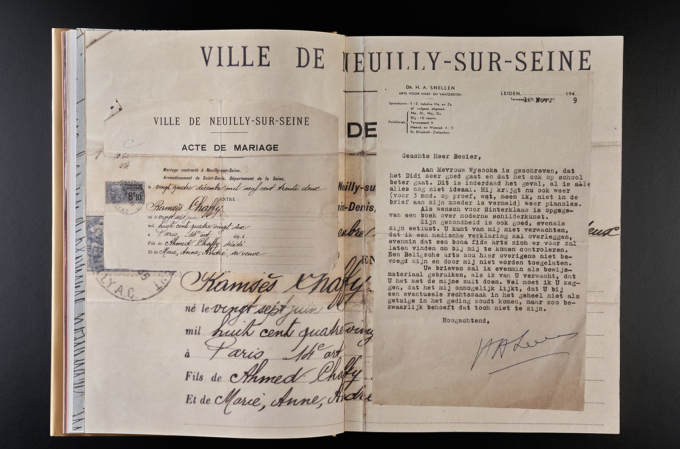 VILLE DE NEUILLY-SUR-SEINE
VILLE DE NEUILLY-SUR-SEINE
ACTE DE MARIAGE
Mariage contracté à Neuilly-sur-Seine,
Arrondissement de Saint-Denis, Département de la Seine,
le vingt quatre décembre mil neuf cent trente deux
ENTRE
Ramsès Chaffy
né le vingt sept juin
mil huit cent quatre vingt
à Paris, 14e arrt
Fils de Ahmed Chaffy
Et de Marie, Anne, André
DE
Neuilly-su
in-Denis,
Ramsès Chaffy
né le vingt sept juin
mil huit cent quatre ving
à Paris, 14e arrt
Fils de Ahmed Chaffy
Et de Marie, Anne, André
Dr. H. A. SNELLEN
ARTS VOOR HART- EN VAATZIEKTEN
LEIDEN, 194 9
16 Nov.
Geachte Heer Becier,
Aan Mevrouw Wysocka is geschreven, dat
het Didi zeer goed gaat en dat het ook op school
beter gaat. Dit is inderdaad het geval, al is
alles nog niet ideaal. Hij krijgt nu ook weer
(voor 3 mnd. op proef, wat, meen ik, niet in de
brief aan zijn moeder is vermeld) weer pianoles.
Als wensch voor Sinterklaas is opgege-
ven een boek over moderne schilderkunst.
Zijn gezondheid is ook goed, evenals
zijn eetlust. U kunt van mij niet verwachten,
dat ik een medische verklaring zal overleggen,
evenmin dat een bona fide arts zich er voor zal
laten vinden om bij mij te komen controleren.
Een Belgische arts zou hier overigens niet be-
voegd zijn en door mij niet worden toegelaten.
Uw brieven zal ik evenmin als bewijs-
materiaal gebruiken, als ik van U verwacht, dat
U het met de mijne zult doen. Wel moet ik U zeg-
gen, dat het mij onmogelijk lijkt, dat U bij
een eventuele rechtszaak in het geheel niet als
getuige in het geding zoudt komen, maar zoo be-
zwaarlijk behoeft dat toch niet te zijn.
Hoogachtend,